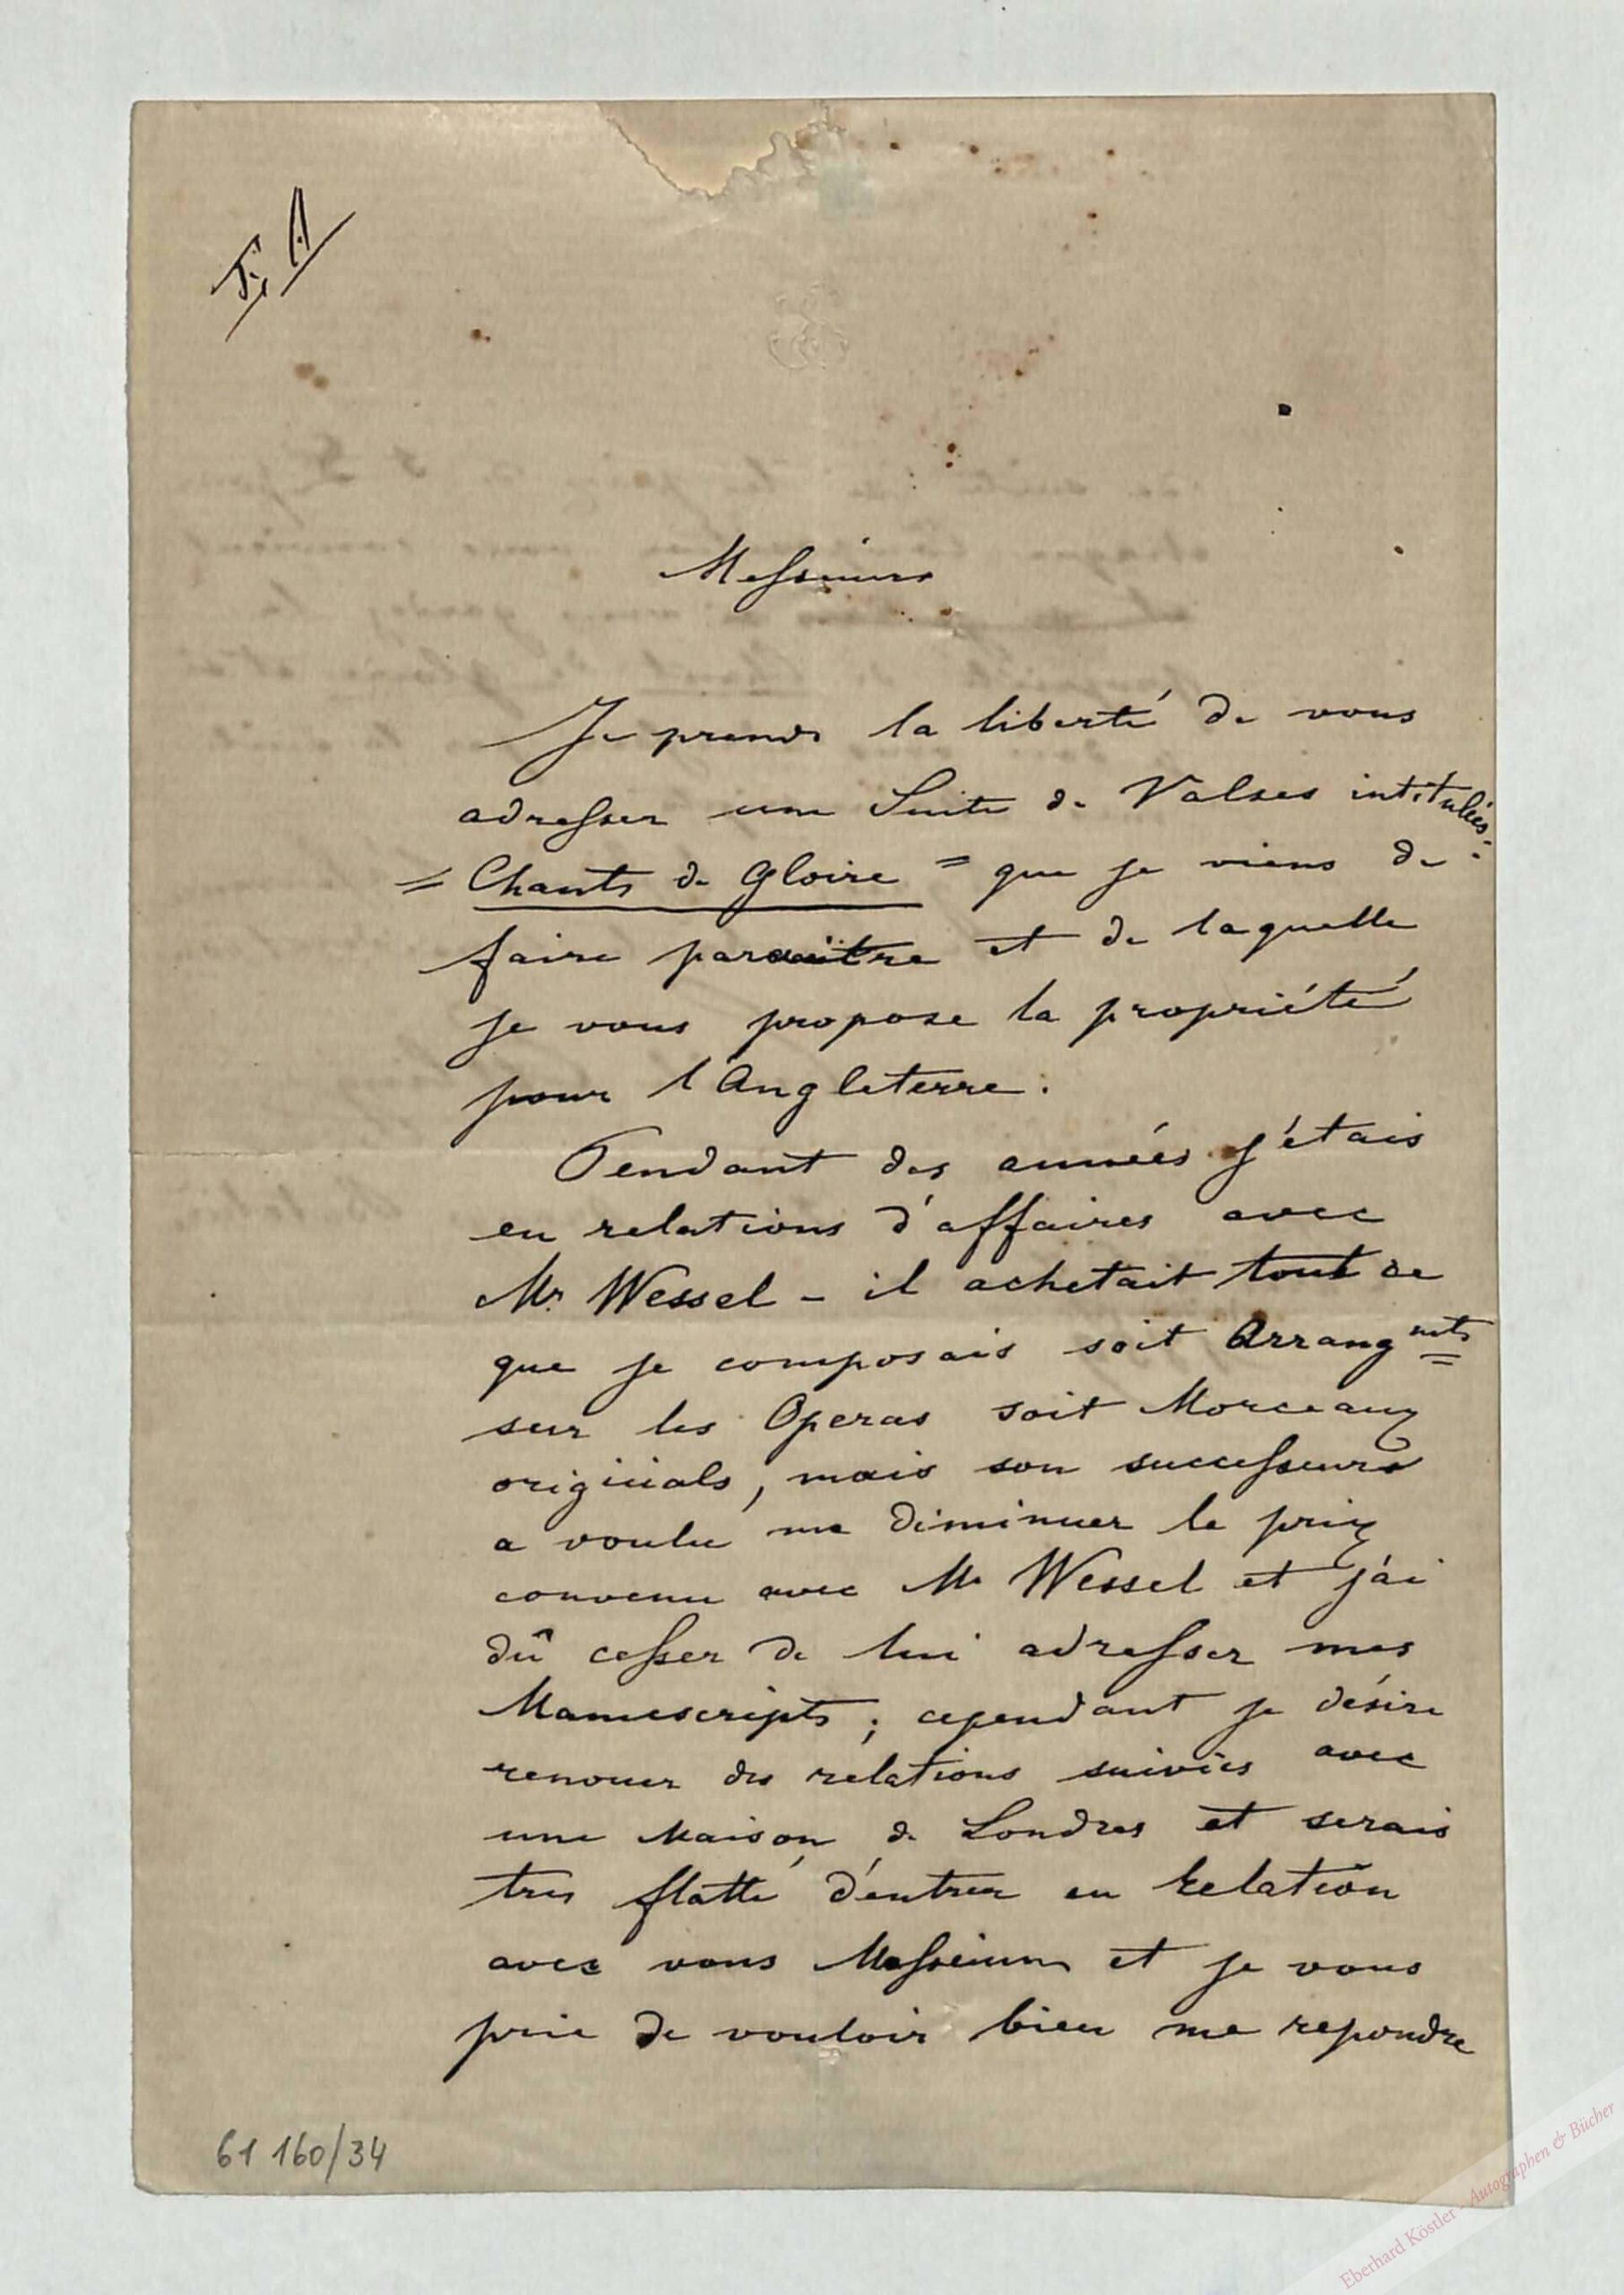 F. A
Messieurs
Je prends la liberté de vous
adresser une Suite de Valses intitulées:
= Chants de Gloire = que je viens de
faire paraître et de laquelle
je vous propose la propriété
pour l'Angleterre.
Pendant des années j'étais
en relations d'affaires avec
Mr Wessel – il achetait tout ce
que je composais soit Arrangmts
sur les Operas soit Morceaux
originals, mais son successeurs
a voulu me diminuer le prix
convenu avec Mr Wessel et j'ai
dû cesser de lui adresser mes
Manuscripts; cependant je désire
renouer des relations suivies avec
une Maison de Londres et serais
tres flatté d'entrer en Relation
avec vous Messieurs et je vous
prie de vouloir bien me repondre
61 160/34
Eberhard Köstler - Autographen & Bücher